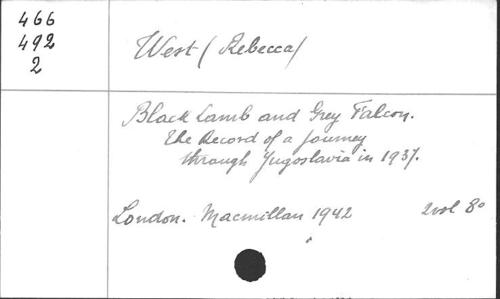 466
492
2
West (Rebecca)
Black Lamb and Grey Falcon.
The Record of a Journey
through Yugoslavia in 1937.
London. Macmillan 1942 2vol 8o